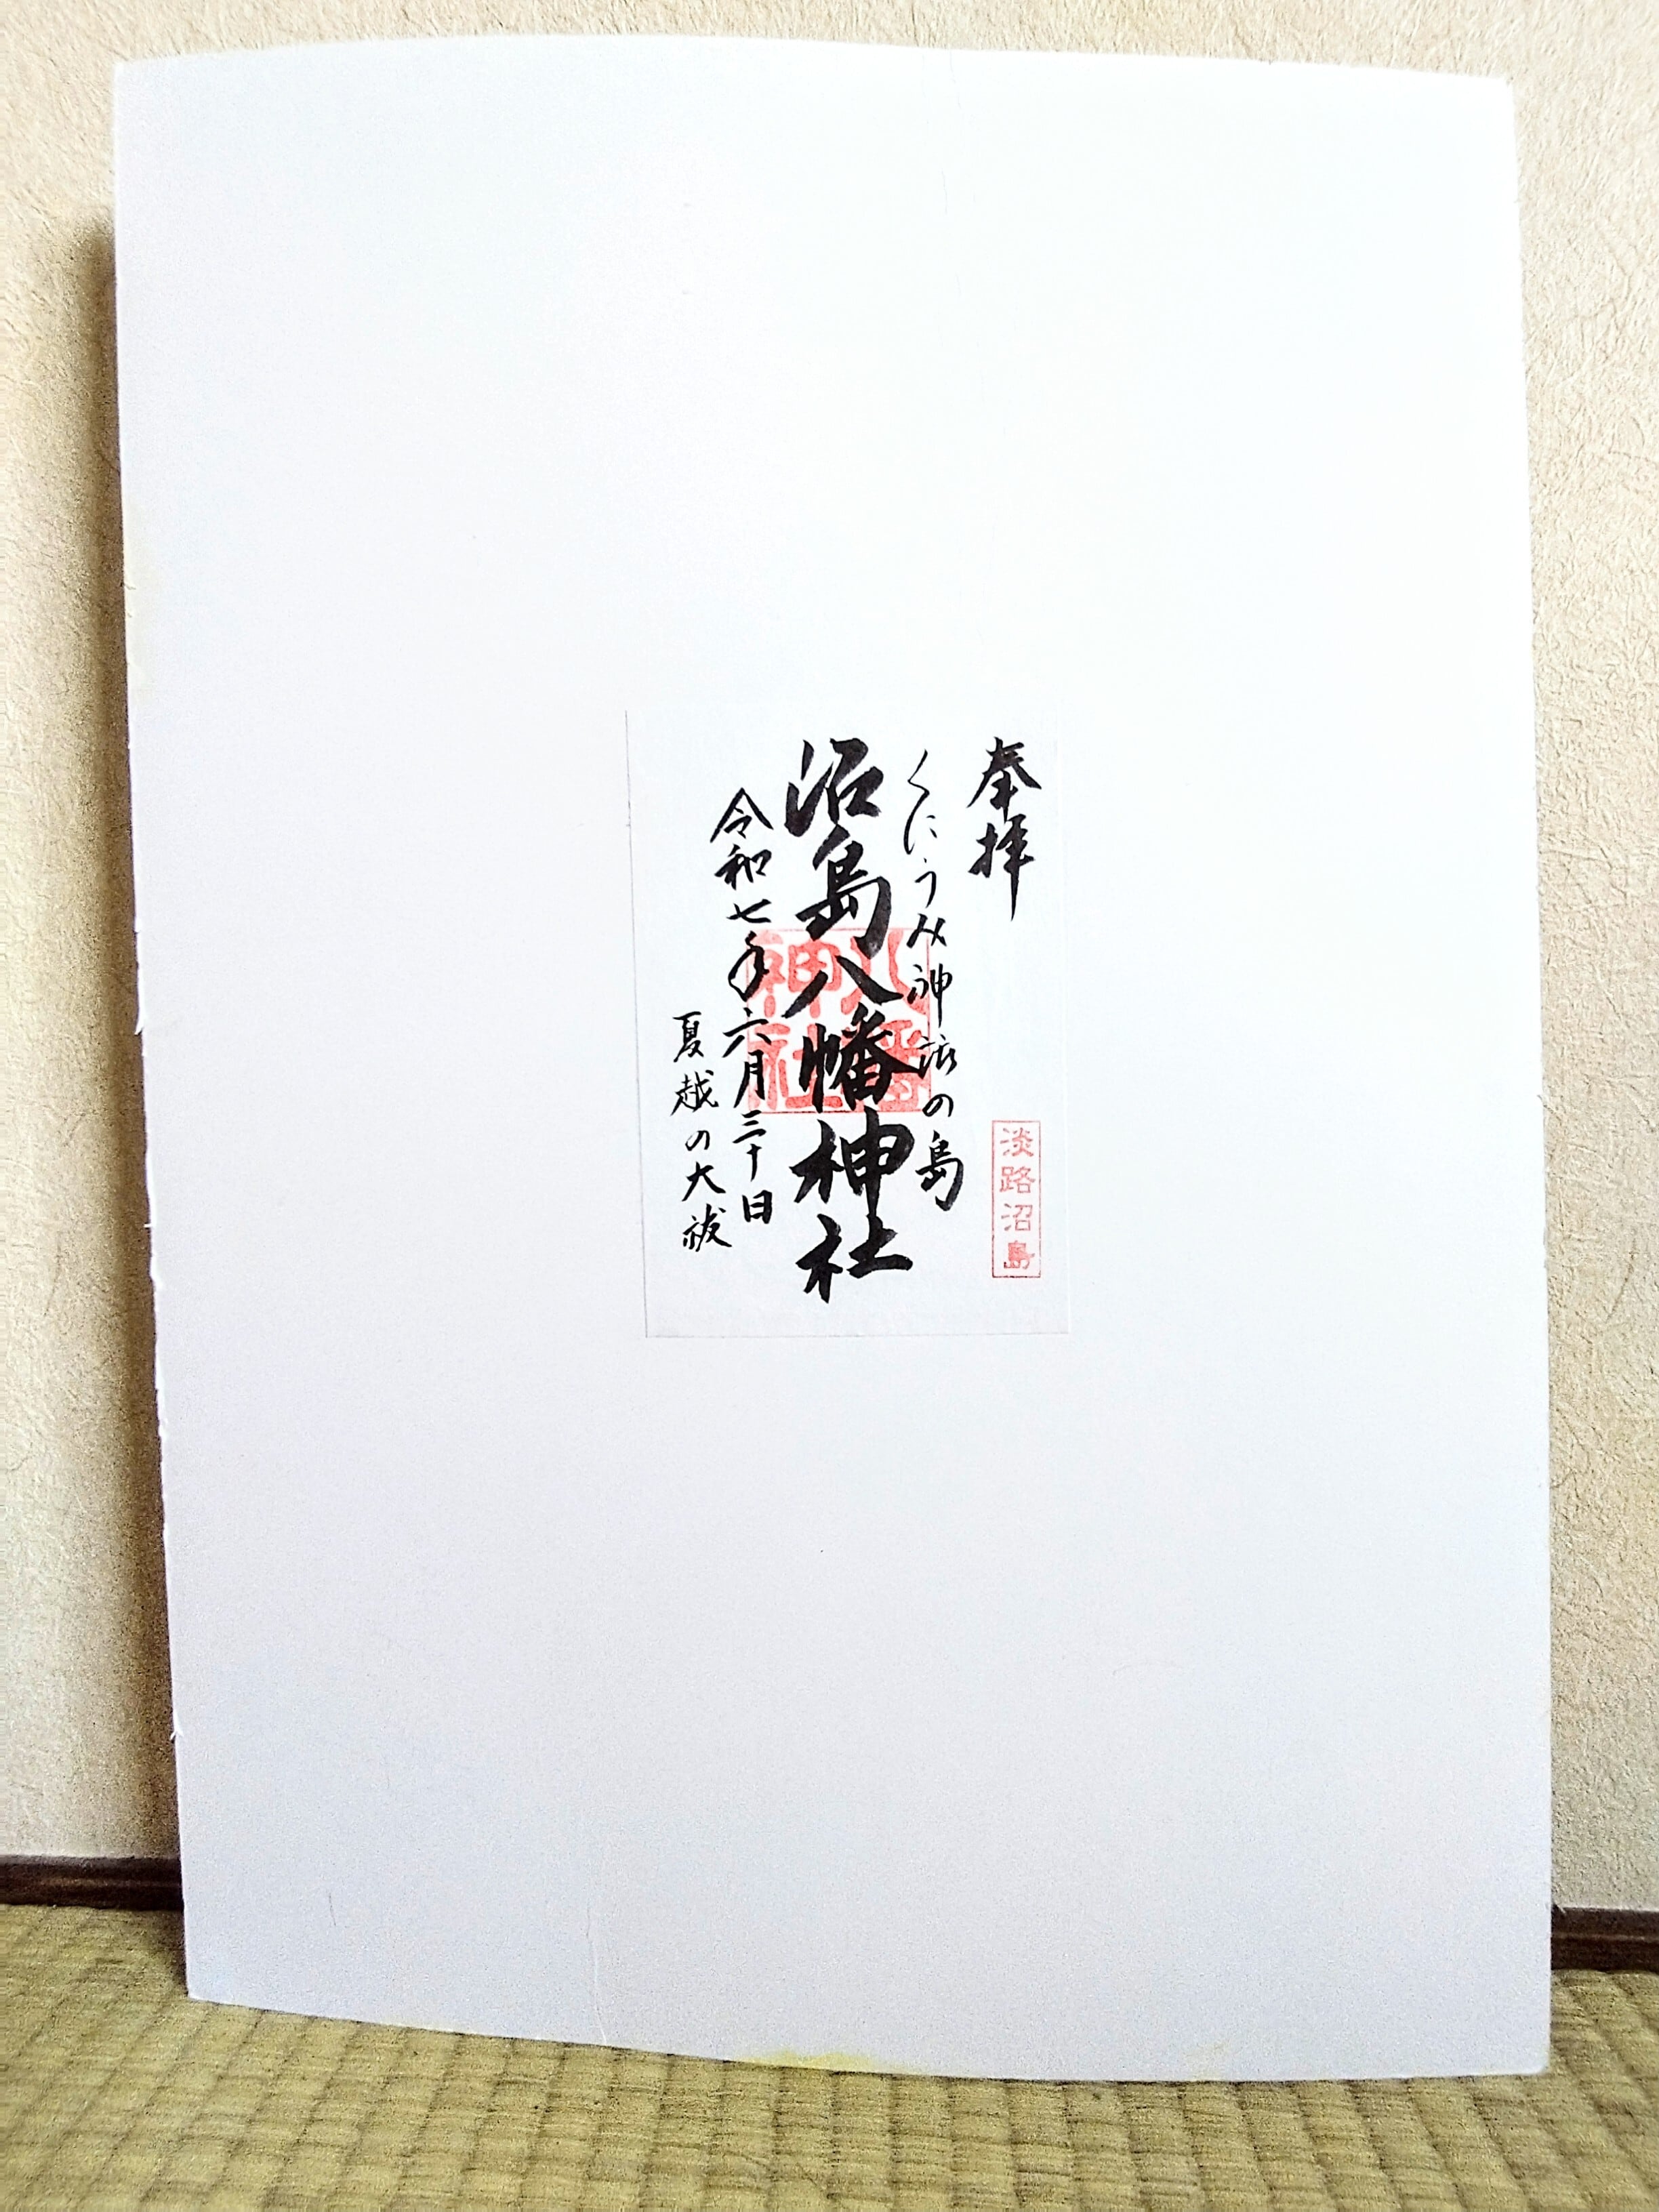 奉拝
淡路沼島
くにうみ神話の島
沼島八幡神社
八幡神社
令和七年六月三十日
夏越の大祓